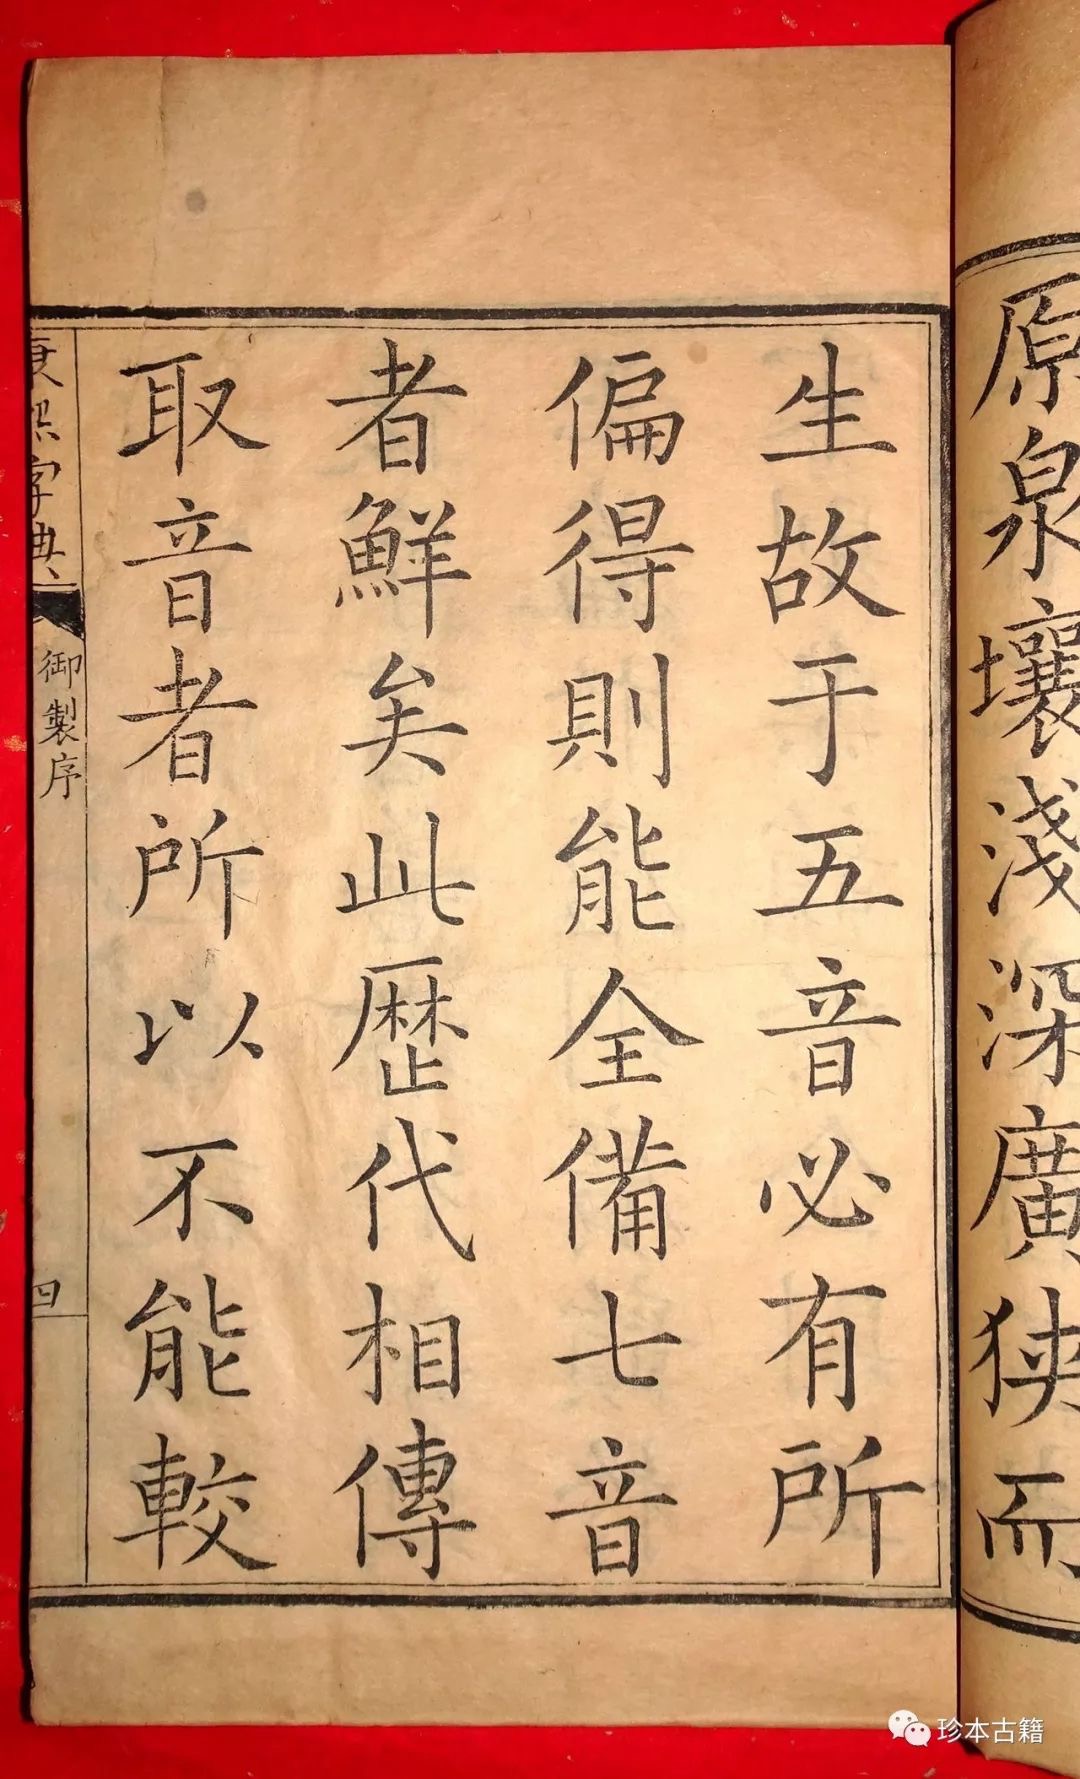 原泉壤淺深廣狹而
生故于五音必有所
偏得則能全備七音
者鮮矣此歷代相傳
取音者所以不能較
康熙字典
御製序
四
珍本古籍